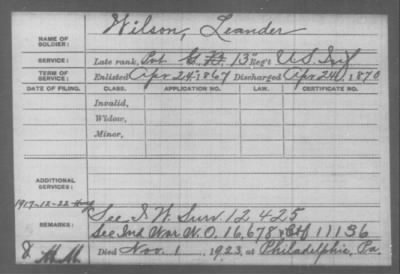 NAME OF SOLDIER: Wilson, Leander
SERVICE: Late rank, Pvt Co. 13" Reg't U.S. Inf
TERM OF SERVICE: Enlisted Apr 24, 1867 Discharged Apr 24, 1870
DATE OF FILING. CLASS. APPLICATION NO. LAW. CERTIFICATE NO.
Invalid,
Widow,
Minor,
ADDITIONAL SERVICES:
1917-12-22
REMARKS: See I. W. Surv. 12425
See Ind War W.O. 16,678 Ctf 11136
Died Nov. 1, 1923, at Philadelphia, Pa.